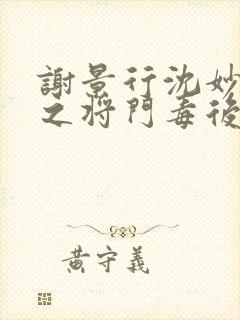 謝景行沈妙
之將門毒後
黃守義